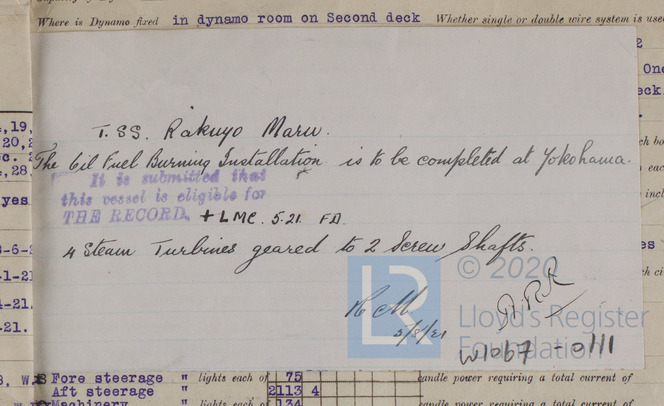 Where is Dynamo fixed in dynamo room on Second deck Whether single or double wire system is used
T.SS. Rakuyo Maru.
The Oil Fuel Burning Installation is to be completed at Yokohama.
It is submitted that
this vessel is eligible for
THE RECORD. + LMC. 5.21. F.D.
4 Steam Turbines geared to 2 Screw Shafts.
LR
© 2020
Lloyd's Register
Foundation
5/8/21
W1067-0111
Fore steerage " lights each of 75 candle power requiring a total current of
Aft steerage 2113 4
Machinery " lights each of 134 candle power requiring a total current of